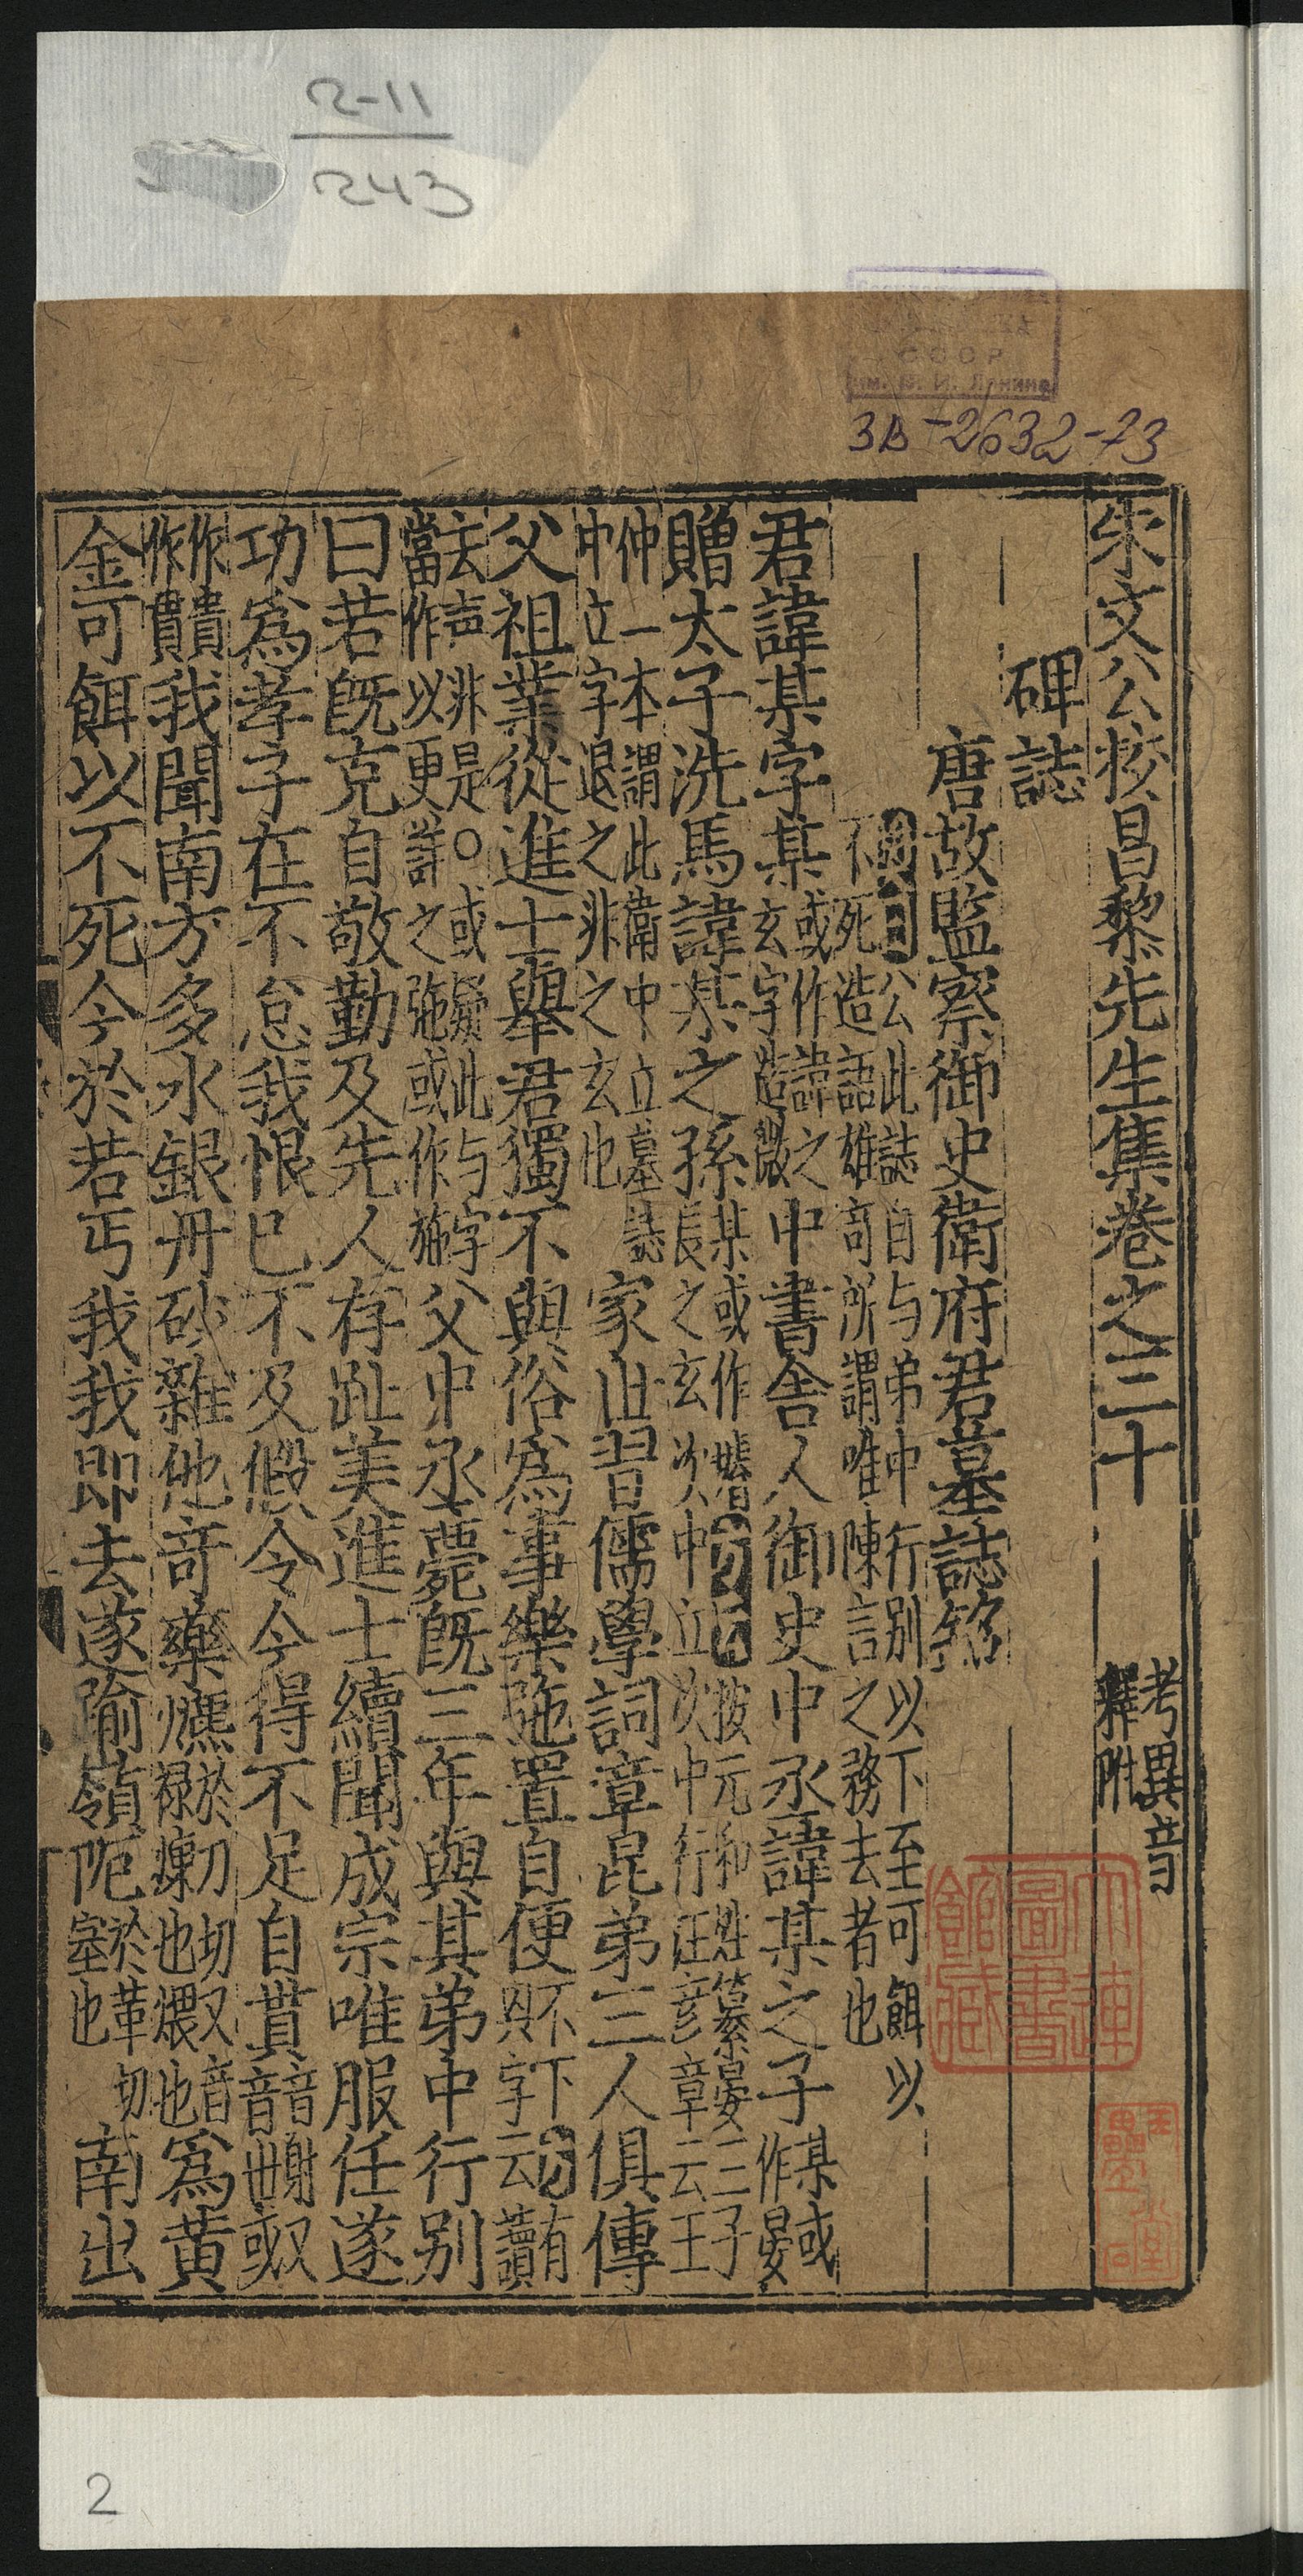 2-11
243
СССР
им. В. И. Ленина
3В-2632-73
朱文公校昌黎先生集卷之三十 考異音釋附
碑誌
唐故監察御史衛府君墓誌銘
公此誌自与弟中行别以下至可餌以
不死造語雄奇所謂唯陳言之務去者也
君諱某字某或作諱之玄字造微中書舍人御史中丞諱某之子某或作晏
贈太子洗馬諱某之孫某或作璿按元和姓纂晏三子長之玄次中立次中行汪彦章云王
仲一本謂此衛中立墓誌中立字退之非之玄也家世習儒學詞章昆弟三人俱傳
父祖業從進士舉君獨不與俗為事樂弛置自便不下與字云有讀
去声非是○或疑此与字當作以更詳之弛或作施父中丞薨既三年與其弟中行别
曰若既克自敬勤及先人存趾美進士續聞成宗唯服任遂
功為孝子在不怠我恨已不及假令今得不足自貰音世貰謝或又
作賷作貴我聞南方多水銀丹砂雜他奇藥爊於刀切又音禄煉也煨也為黄
金可餌以不死今於若丐我我即去遂踰嶺阨於革切塞也南出
大連圖書館藏
2